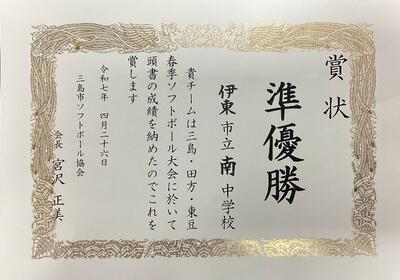 賞状
準優勝
伊東市立南中学校
貴チームは三島・田方・東豆
春季ソフトボール大会に於いて
頭書の成績を納めたのでこれを
賞します
令和七年 四月二十六日
三島市ソフトボール協会
会長 宮沢正美